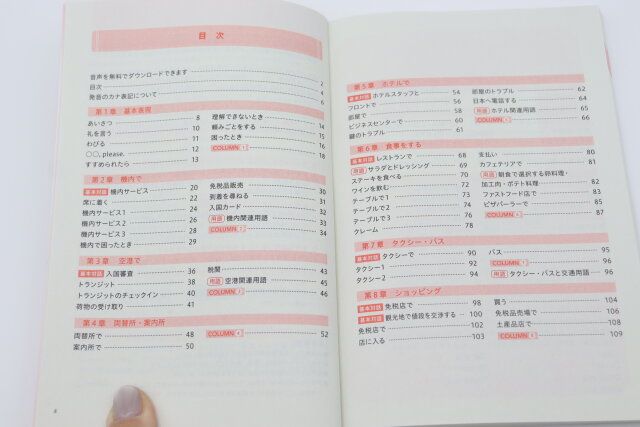 目 次
音声を無料でダウンロードできます 2
目次 4
発音のカナ表記について 6
第1章 基本表現
あいさつ 8
礼を言う 10
わびる 11
○○, please. 12
すすめられたら 13
理解できないとき 14
頼みごとをする 15
困ったとき 16
COLUMN 1 18
第2章 機内で
基本対話 機内サービス 20
席に着く 22
機内サービス1 24
機内サービス2 26
機内サービス3 28
機内で困ったとき 29
免税品販売 30
到着を尋ねる 31
入国カード 32
用語 機内関連用語 33
COLUMN 2 34
第3章 空港で
基本対話 入国審査 36
トランジット 38
トランジットのチェックイン 40
荷物の受け取り 41
税関 43
用語 空港関連用語 45
COLUMN 3 46
第4章 両替所・案内所
両替所で 48
案内所で 50
COLUMN 4 52
8
第5章 ホテルで
基本対話 ホテルスタッフと 54
フロントで 56
部屋で 58
ビジネスセンターで 60
鍵のトラブル 61
部屋のトラブル 62
日本へ電話する 64
用語 ホテル関連用語 65
COLUMN 5 66
第6章 食事をする
基本対話 レストランで 68
用語 サラダとドレッシング 69
ステーキを食べる 70
ワインを飲む 72
テーブルで1 73
テーブルで2 74
テーブルで3 76
クレーム 78
支払い 80
カフェテリアで 81
用語 朝食で選択する卵料理・
加工肉・ポテト料理 82
ファストフード店で 83
ピザパーラーで 85
COLUMN 6 87
第7章 タクシー・バス
基本対話 タクシーで 90
タクシー1 92
タクシー2 94
バス 95
COLUMN 7 96
用語 タクシー・バスと交通用語 96
第8章 ショッピング
基本対話 免税店で 98
基本対話 観光地で値段を交渉する 100
免税店で 102
店に入る 103
買う 104
免税品売場で 106
土産品店で 108
COLUMN 8 109